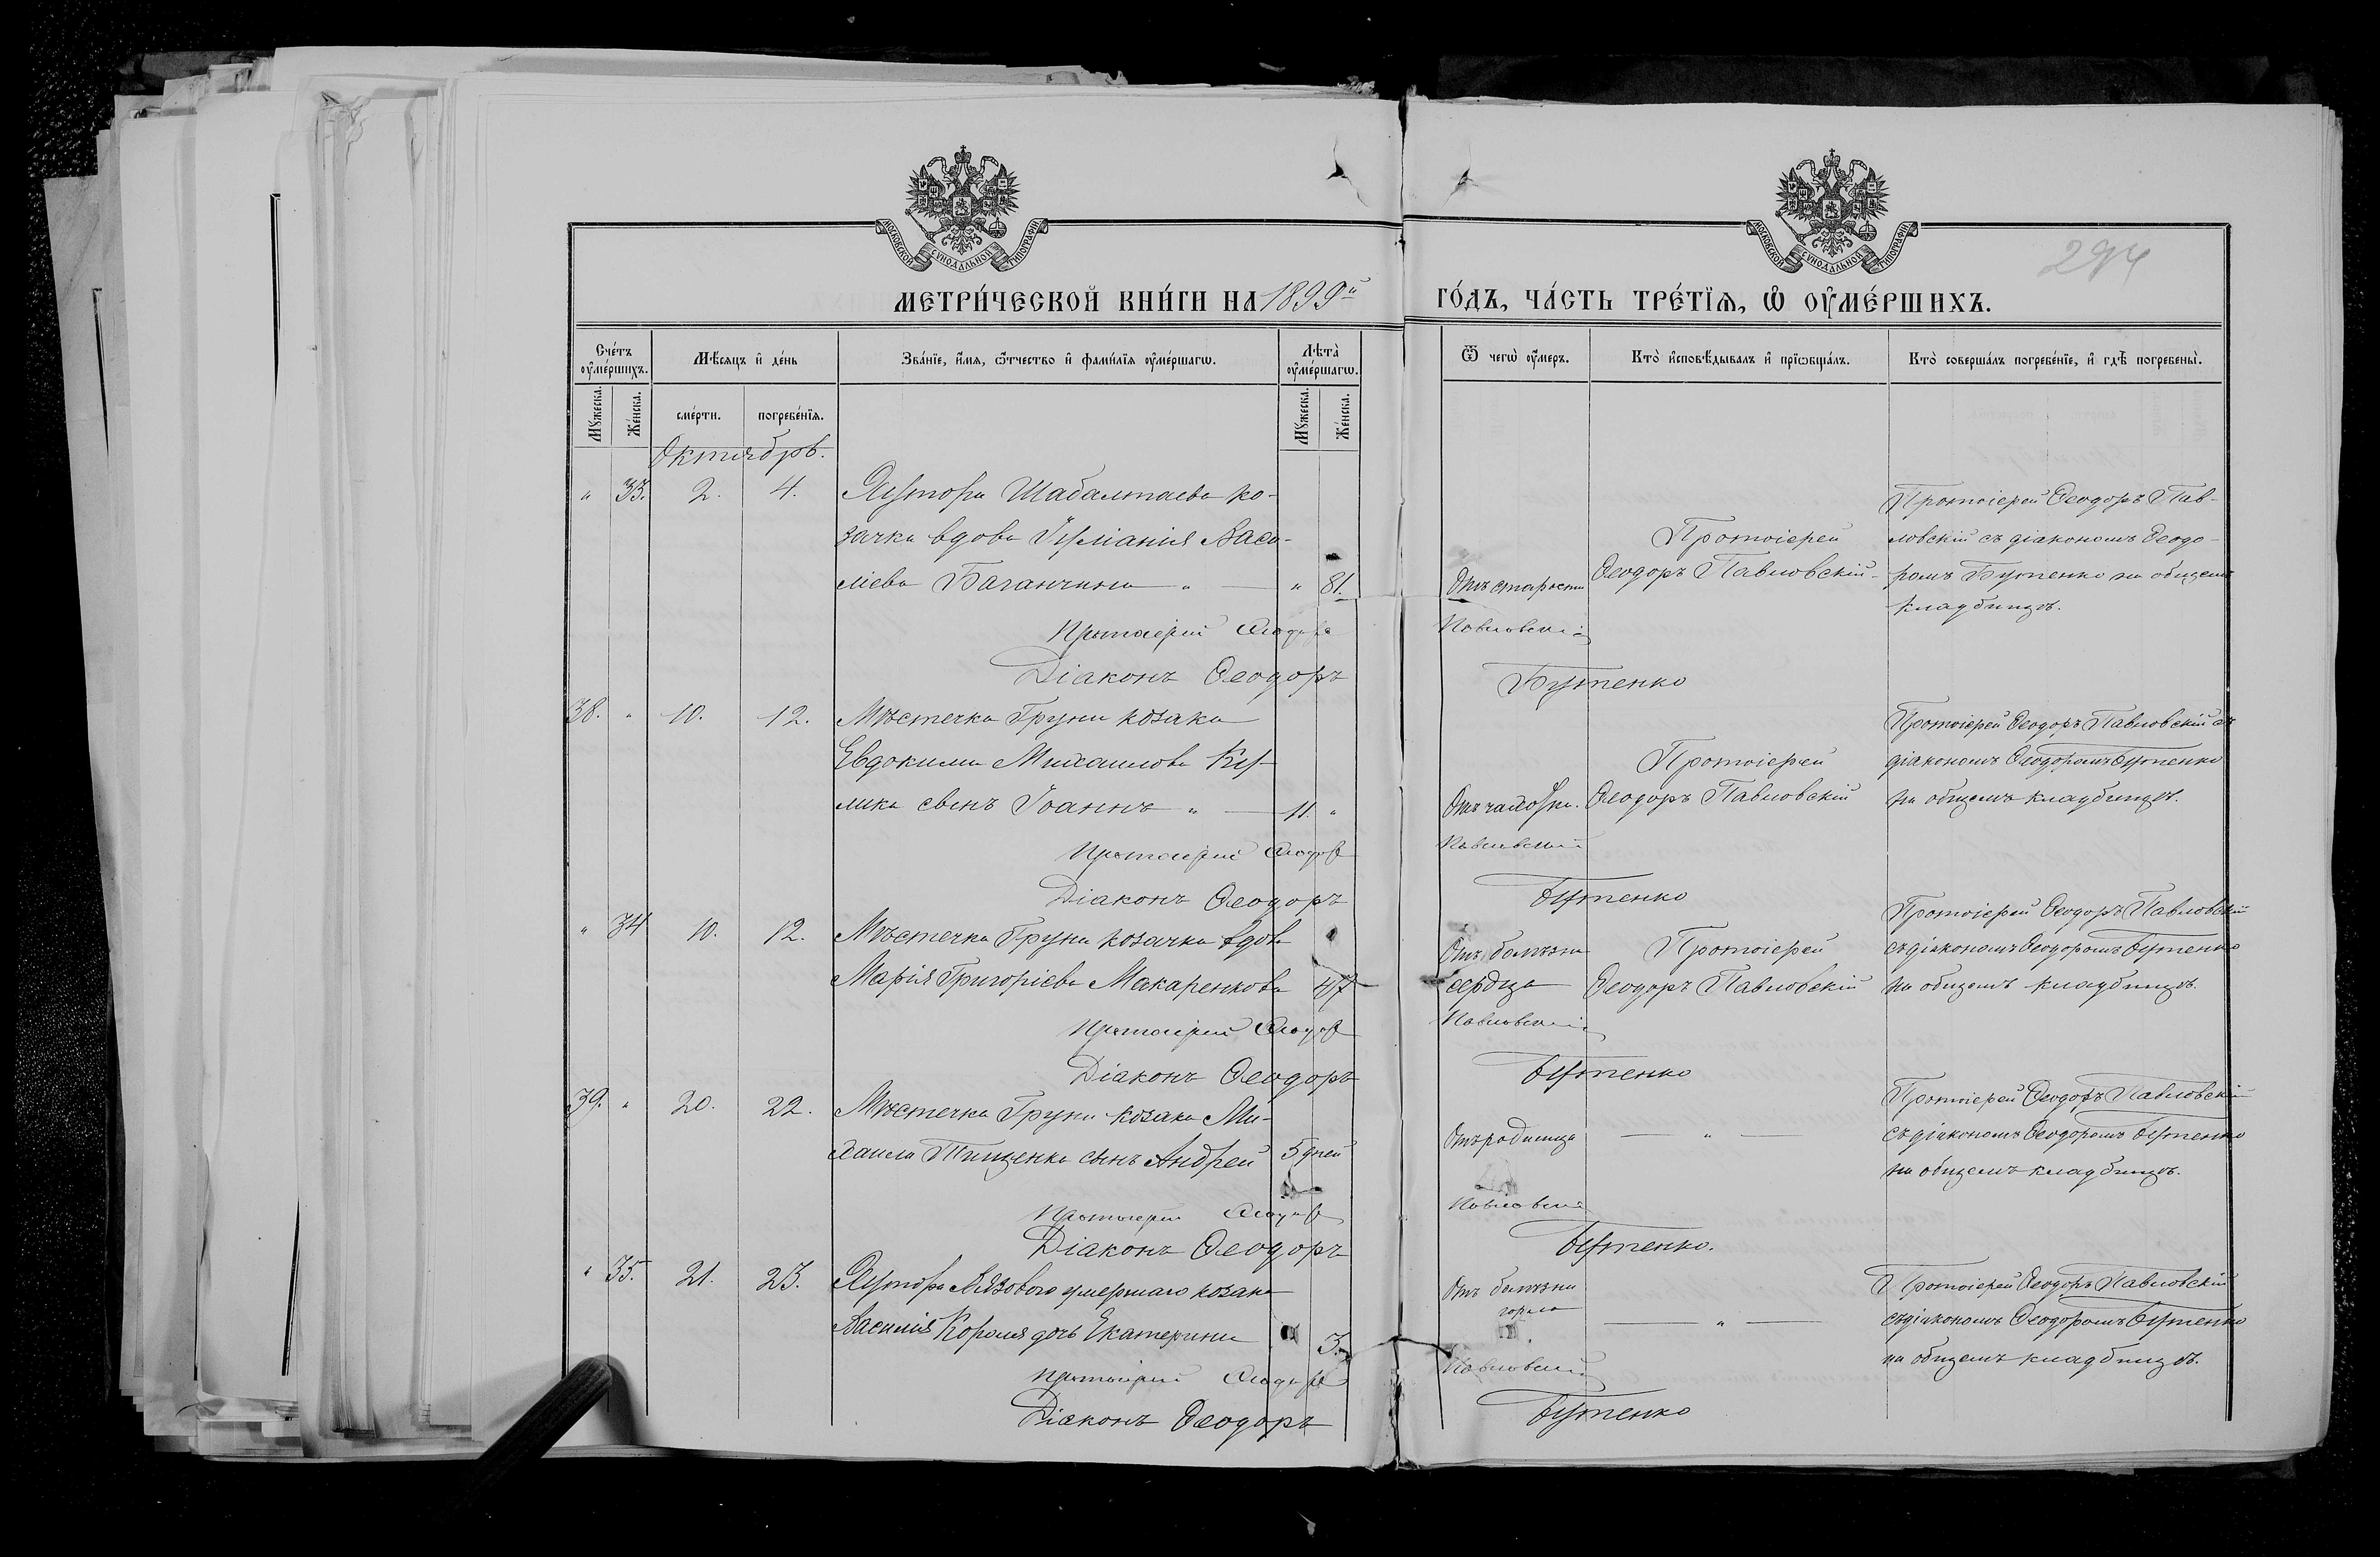 МОСКОВСКОЙ СѴНОДАЛЬНОЙ ТИПОГРАФІИ
МОСКОВСКОЙ СѴНОДАЛЬНОЙ ТИПОГРАФІИ
294
МЕТРИ́ЧЕСКОЙ КНИ́ГИ НА 1899й ГО́ДЪ, ЧА́СТЬ ТРЕ́ТЇѦ, Ѡ҆ ОУ҆МЕ́РШИХЪ.
Сче́тъ оу҆ме́ршихъ.
Мѣ́сяцъ и҆ де́нь
Зва́нїе, и҆́мя, ѻ҆́тчество и҆ фами́лїя оу҆ме́ршагѡ.
Лѣ́та оу҆ме́ршагѡ.
Ѿ чегѡ̀ оу҆́меръ.
Кто̀ и҆сповѣ́дывалъ и҆ прїѡбща́лъ.
Кто̀ соверша́лъ погребе́нїе, и҆ гдѣ̀ погребены̀.
Му́жеска.
Же́нска.
сме́рти.
погребе́нїя.
Му́жеска.
Же́нска.
Октябрь.
" 33. 2. 4. Хутора Шабалтаева ко-
зачка вдова Іуліанія Васи-
ліева Баганчина " — " 81.
Отъ старости
Протоіерей
Ѳеодоръ Павловскій
Протоіерей Ѳеодоръ Пав-
ловскій съ діакономъ Ѳеодо-
ромъ Бутенко на общемъ
кладбищѣ.
Протоіерей Ѳеодоръ Павловскій
Діаконъ Ѳеодоръ Бутенко
38. " 10. 12. Мѣстечка Груни козака
Евдокима Михаилова Ку-
лика сынъ Іоаннъ " — 11. "
Отъ чахотки.
Протоіерей
Ѳеодоръ Павловскій
Протоіерей Ѳеодоръ Павловскій съ
діакономъ Ѳеодоромъ Бутенко
на общемъ кладбищѣ.
Протоіерей Ѳеодоръ Павловскій
Діаконъ Ѳеодоръ Бутенко
" 34 10. 12. Мѣстечка Груни козачка вдова
Марія Григоріева Макаренкова 47
Отъ болѣзни
сердца
Протоіерей
Ѳеодоръ Павловскій
Протоіерей Ѳеодоръ Павловскій
съ діакономъ Ѳеодоромъ Бутенко
на общемъ кладбищѣ.
Протоіерей Ѳеодоръ Павловскій
Діаконъ Ѳеодоръ Бутенко
39. " 20. 22. Мѣстечка Груни козака Ми-
хаила Тищенка сынъ Андрей 5 дней
Отъ родимца
— " —
Протоіерей Ѳеодоръ Павловскій
съ діакономъ Ѳеодоромъ Бутенко
на общемъ кладбищѣ.
Протоіерей Ѳеодоръ Павловскій
Діаконъ Ѳеодоръ Бутенко.
" 35. 21. 23. Хутора умершаго козака
Василія Короля дочь Екатерина 3.
Отъ болѣзни
горла
— " —
Протоіерей Ѳеодоръ Павловскій
съ діакономъ Ѳеодоромъ Бутенко
на общемъ кладбищѣ.
Протоіерей Ѳеодоръ Павловскій
Діаконъ Ѳеодоръ Бутенко